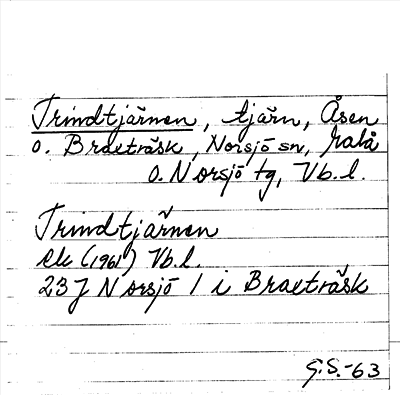 Trindtjärnen, tjärn, Åsen
o. Braxträsk, Norsjö sn, Malå
o. Norsjö tg, Vb.l.
Trindtjärnen
ek (1961) Vb.l.
23J Norsjö 1 i Braxträsk
G.S.-63